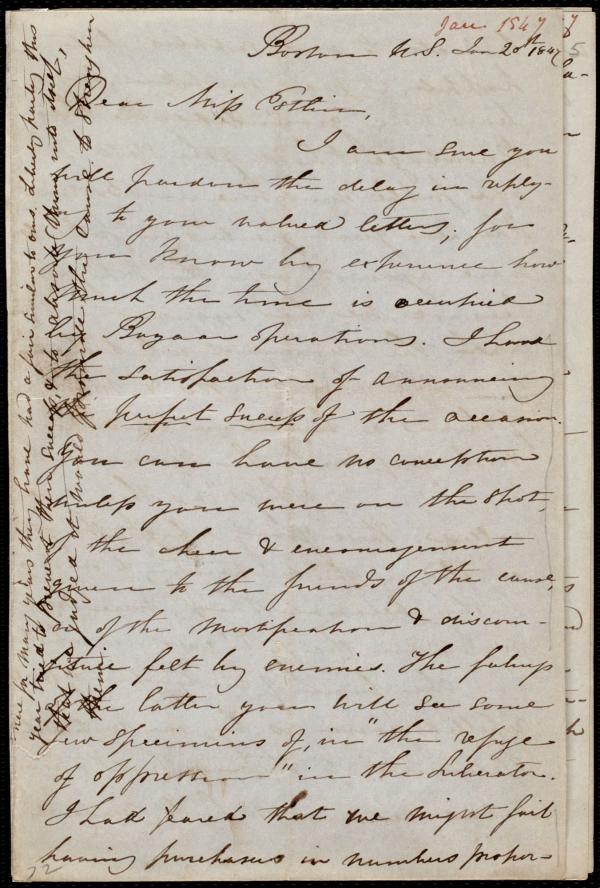 Jan. 1847
Boston U.S. Jan 20th 1847
Dear Miss Estlin,
I am sure you
will pardon the delay in reply-
ing to your valued letters, for
you know by experience how
much the time is occupied
by Bazaar operations. I have
the satisfaction of announcing
the perfect success of the occasion.
You can have no conception
unless you were on the spot,
of the cheer & encouragement
given to the friends of the cause,
or of the mortification & discom-
fiture felt by enemies. The
of the latter you will see some
few specimens of, in "the refuge
of oppression" in the Liberator.
I had feared that we might fail
having purchasers in numbers propor-
72
for many years they have had a fair similar to ours. Liberty party this
year tried to prevent their success, & to
that we judged it would promote the cause to strengthen
them.